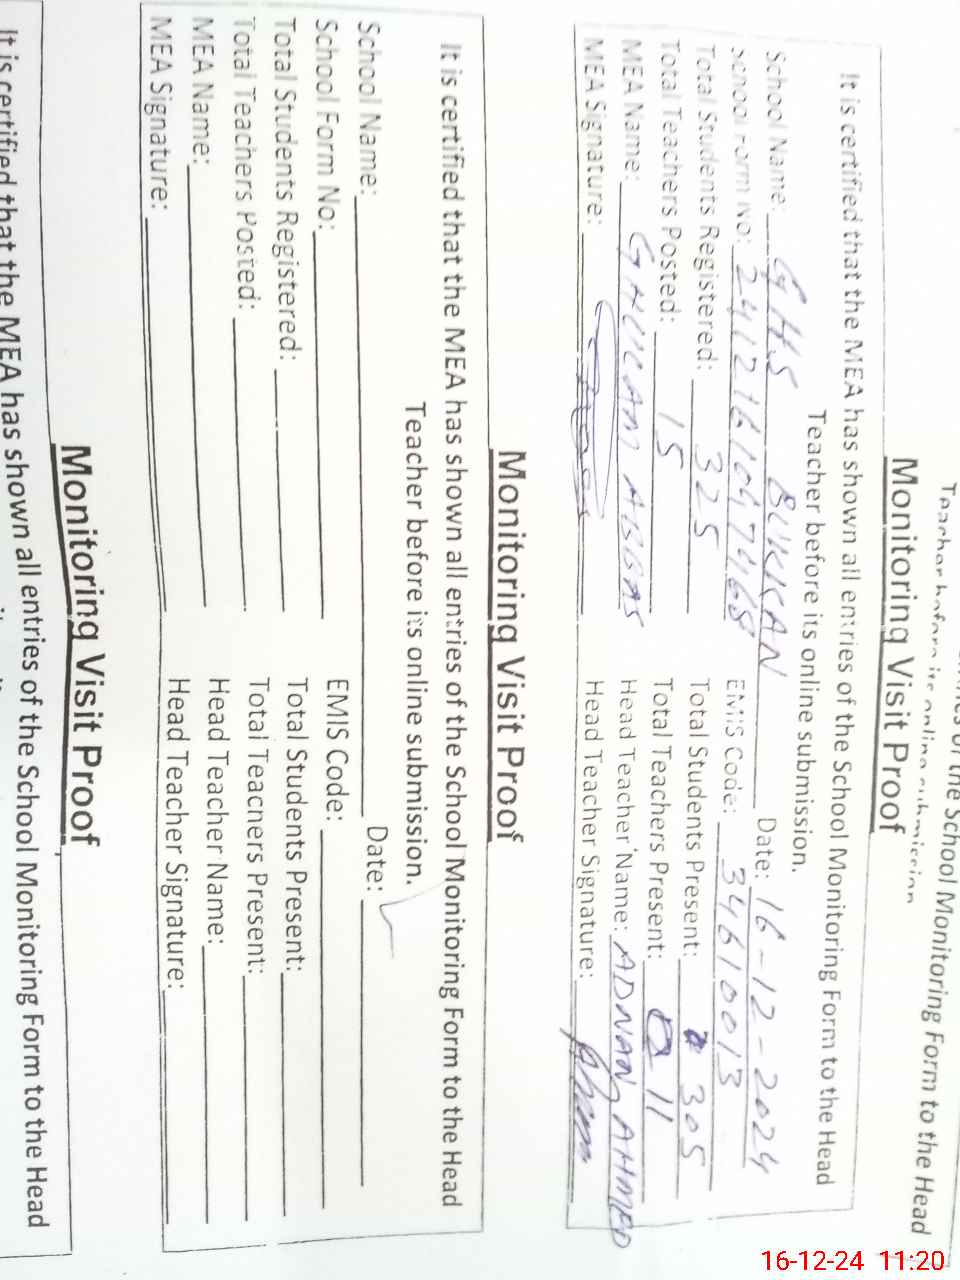 entries of the School Monitoring Form to the Head
Teacher before its online submission
Monitoring Visit Proof
It is certified that the MEA has shown all entries of the School Monitoring Form to the Head
Teacher before its online submission.
School Name: GHS BUKKAN Date: 16-12-2024
School Form No: EMIS Code: 34610013
Total Students Registered: 325 Total Students Present: 305
Total Teachers Posted: 15 Total Teachers Present: 11
MEA Name: GHULAM ABBAS Head Teacher Name: ADNAN AHMED
MEA Signature: Head Teacher Signature:
Monitoring Visit Proof
It is certified that the MEA has shown all entries of the School Monitoring Form to the Head
Teacher before its online submission.
School Name: Date:
School Form No: EMIS Code:
Total Students Registered: Total Students Present:
Total Teachers Posted: Total Teachers Present:
MEA Name: Head Teacher Name:
MEA Signature: Head Teacher Signature:
Monitoring Visit Proof
It is certified that the MEA has shown all entries of the School Monitoring Form to the Head
16-12-24 11:20